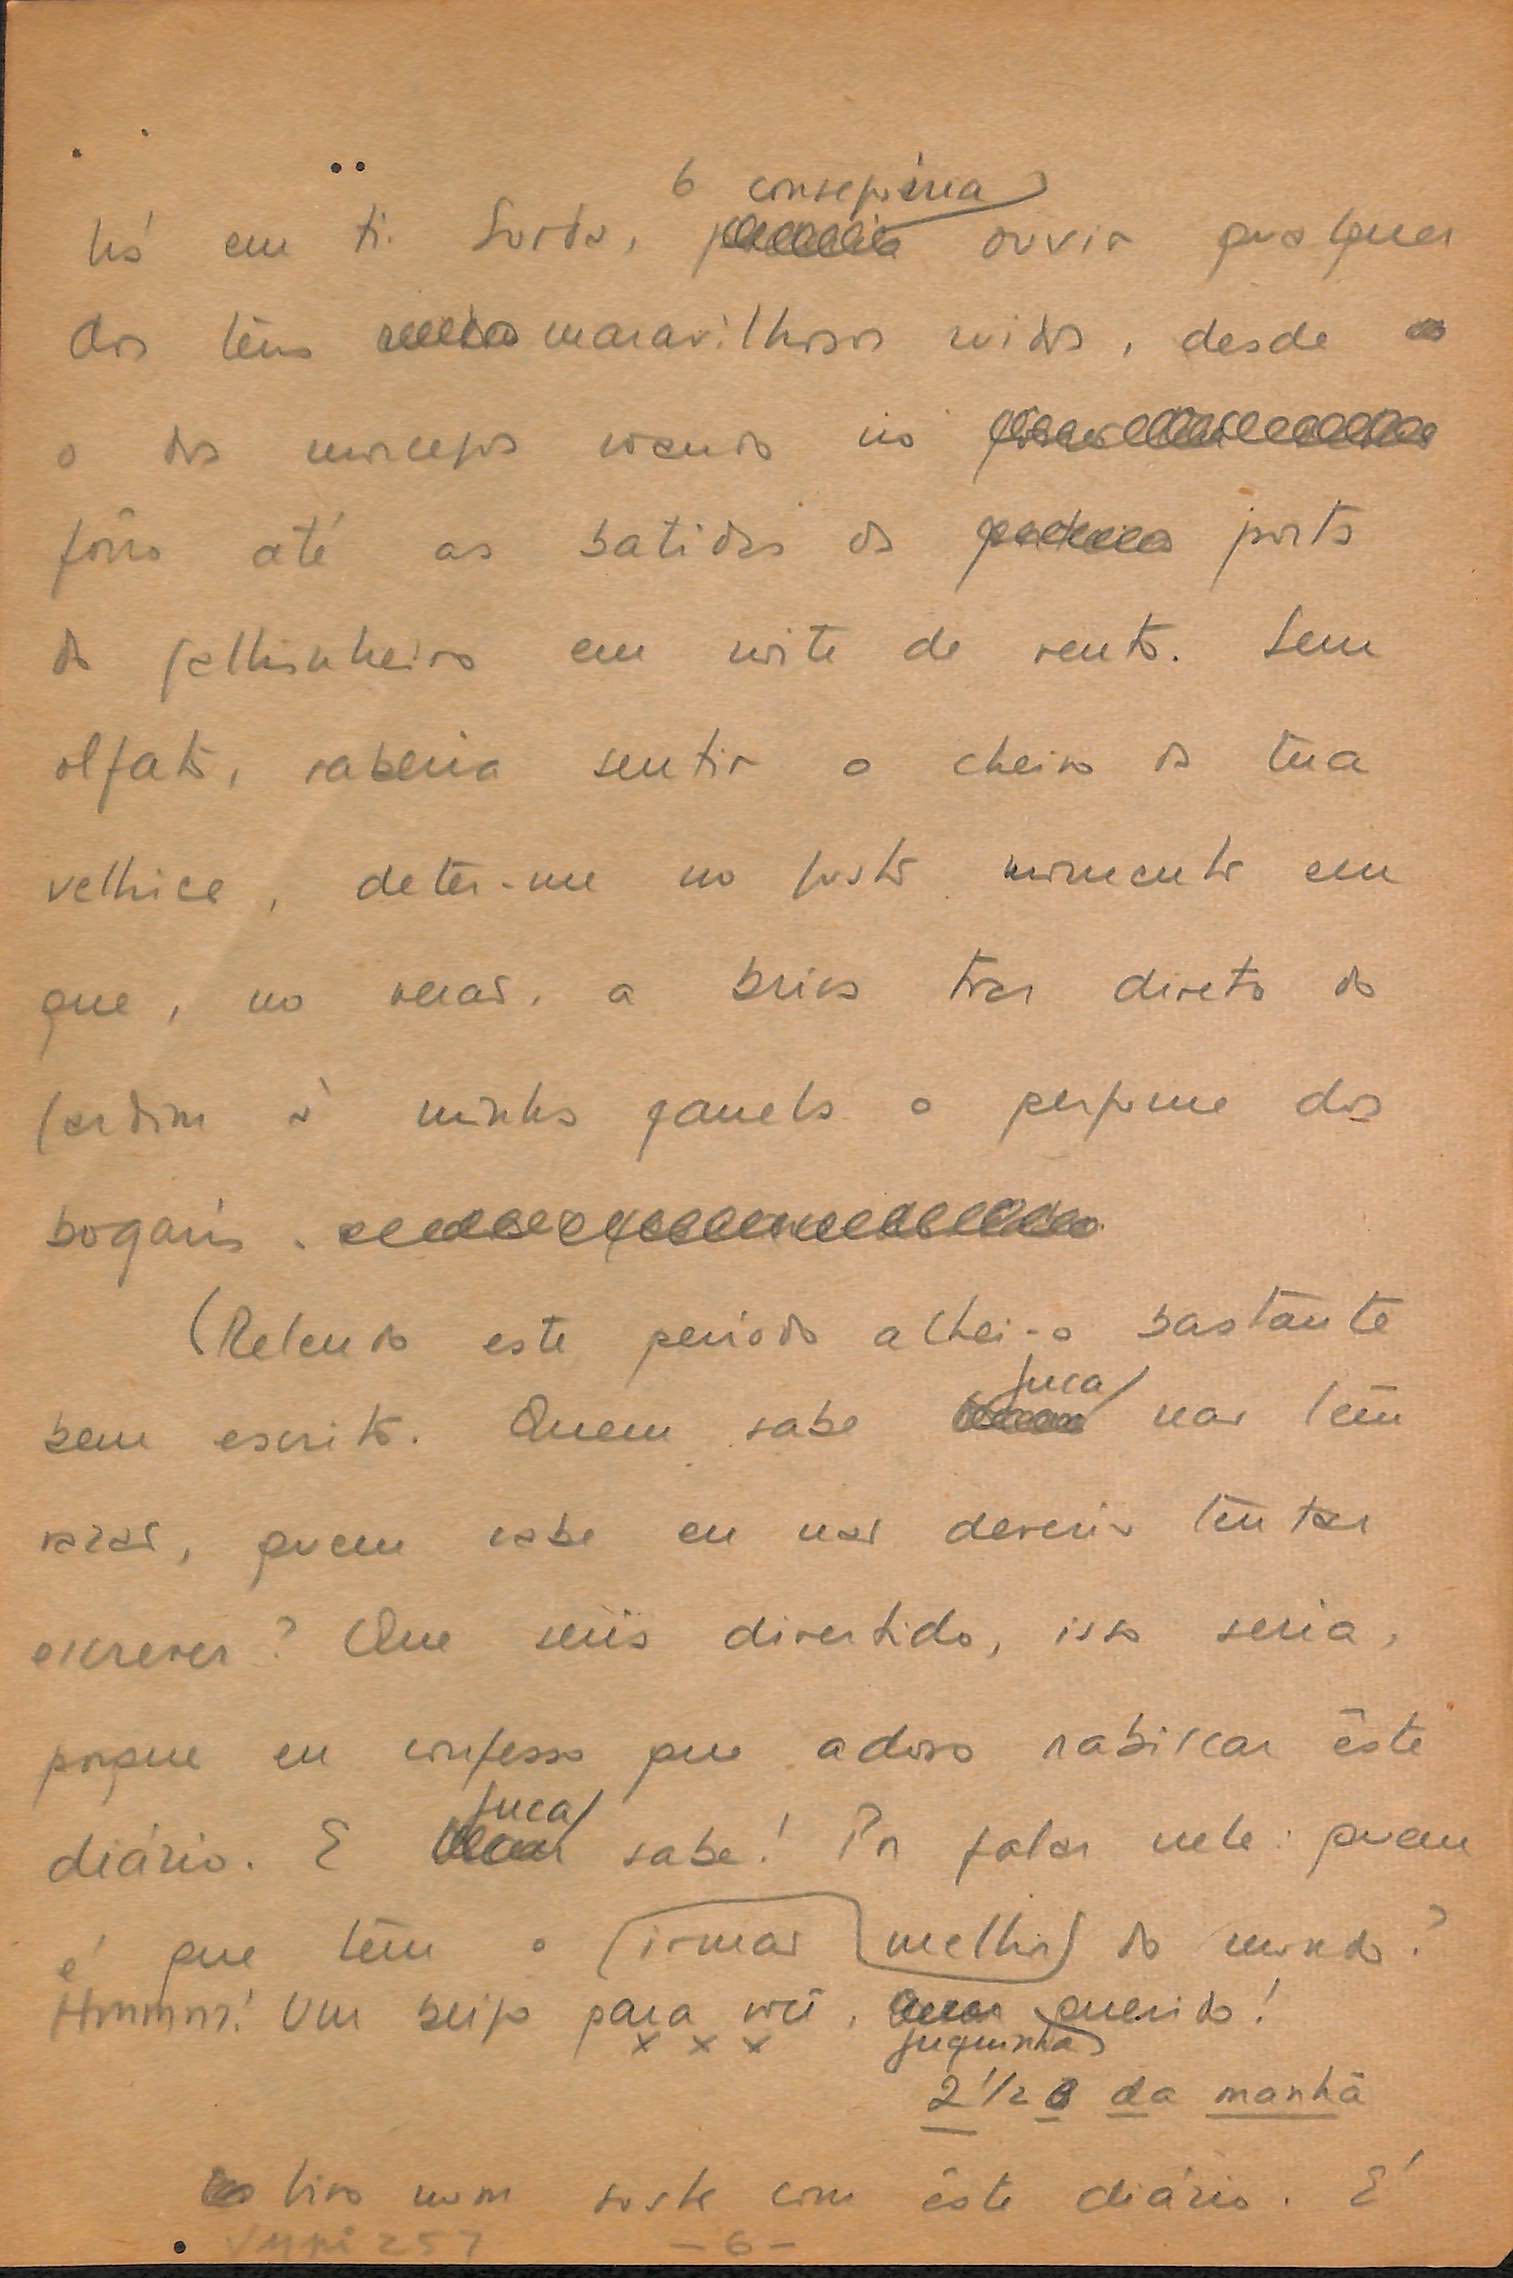 6 conseguiria
há em ti. Surda, ouvir qualquer
dos teus maravilhosos ruidos, desde
o dos morcegos voando no
fôrro até as batidas da porta
do gallinheiro em noite de vento. Sem
olfato, saberia sentir o cheiro da tua
velhice, deter-me no justo momento em
que, no verão, a brisa traz direto do
jardim à minha janela o perfume dos
bogaris.
(Relendo este periodo achei-o bastante
juca
bem escrito. Quem sabe não tem
razão, quem sabe eu não deveria tentar
escrever? Que seria divertido, isso seria,
porque eu confesso que adoro rabiscar êste
juca
diário. E sabe! Por falar nele: quem
é que tem o irmão melhor do mundo?
Hmmm! Um beijo para você, querido!
x x x juquinha
2 1/2 da manhã
Estou num susto com êste diário. É
Vmpi 257 -6-